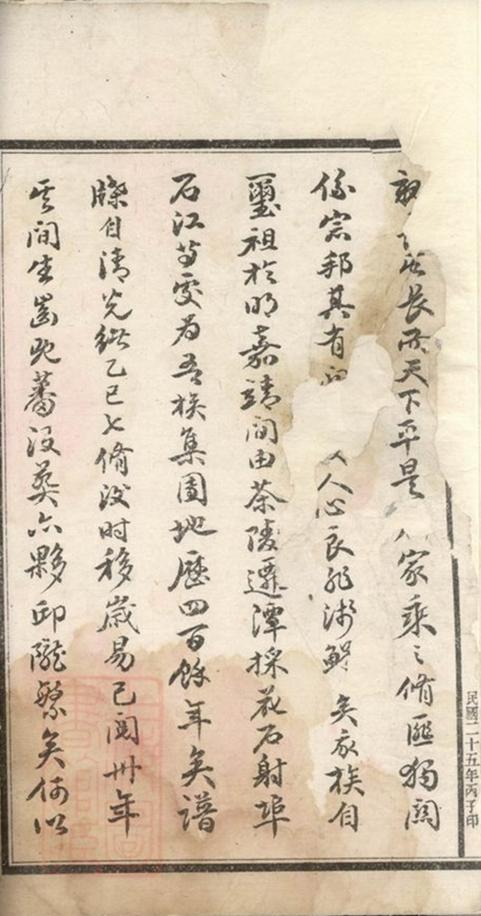 民國二十五年丙子印
親其長而天下平是家乘之脩匪獨關
係宗邦其有人心良非淺鮮矣我族自
璽祖於明嘉靖間由茶陵遷潭採花石射埠
石江等處為吾族集團地歷四百餘年矣譜
牒自清光緒乙巳七脩後時移歲易已閱卅年
其間生齒既蕃沒葬亦夥邱隴繁矣何以